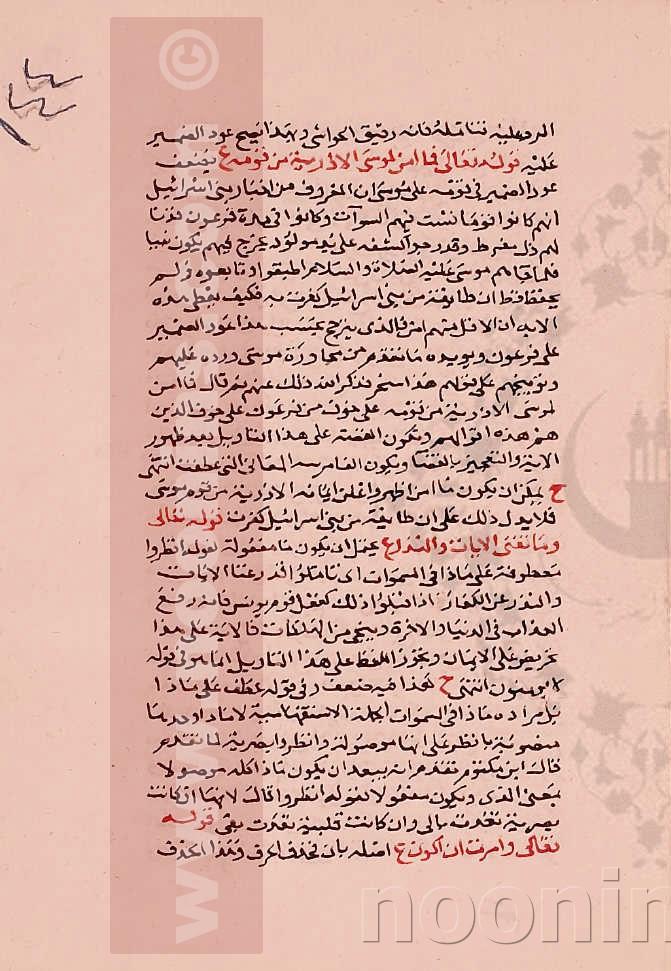 الرد عليه فتأمله فانه رقيق الحواشى وبهذا يصح عود الضمير
عليه قوله تعالى فما امن لموسى الا ذرية من قومه ع يضعف
عود الضمير فى قومه على موسى ان المعروف من اخبار بنى اسرائيل
انهم كانوا قوما فشت فيهم النبوات وكانوا فى مدة فرعون قد نالهم
ذل مفرط وقد رجوا كشفه على يد مولود يخرج فيهم يكون نبيا
فلما جاهم موسى عليه الصلاة والسلام اطبقوا وتابعوه ولم
يحفظ قط ان طايفة من بنى اسرائيل كفرت به فكيف تعطى هذه
الاية ان الاقل منهم امن فالذى يترجح بحسب هذا عود الضمير
على فرعون ويويده ما تقدم من محاورة موسى ورده عليهم
وتوبيخهم على قولهم هذا سحر فذكر الله ذلك عنهم ثم قال فما امن
لموسى الا ذرية من قومه على خوف من فرعون على خوف الذين
هم هذه اقوالهم وتكون القصة على هذا التاويل بعد ظهور
الاية والتعجيز بالعصا وتكون الفا مرتبه المعانى التى عطفت انتهى
ح يمكن ان يكون ما امن اظهر واعلن ايمانه الا ذرية من قوم موسى
فلا يدل ذلك على ان طايفة من بنى اسرائيل كفرت قوله تعالى
وما تغنى الايات والنذر ع يحتمل ان يكون ما مفعولة لقوله انظروا
معطوفة على ماذا فى السموات اى تاملوا قدر غنا الايات
والنذر عن الكفار اذا قبلوا ذلك كفعل قوم يونس فانه رفع
العذاب فى الدنيا والاخرة وينجى من الهلكات فالاية على هذا
تحريض على الايمان وتجوز اللفظ على هذا التاويل انما هو فى قوله
لا يومنون انتهى ح هذا فيه ضعف وفى قوله عطف على ماذا
بل مراده ماذا فى السموات الجملة الاستفهامية لا ماذا وحدها
منصوبة بانظر على انها موصولة وانظروا بصرية لما تقدم
قال ابن مكتوم تقدم انه يبعد ان يكون ماذا كله موصولا
بمعنى الذى ويكون مفعولا لقوله انظروا قال لانها ان كانت
بصرية تعدت بالى وان كانت قلبية تعدت بفى قوله
تعالى وامرت ان اكون ع اصله بان فحذف الحرف وهذا الحذف
www.s
©
noonin